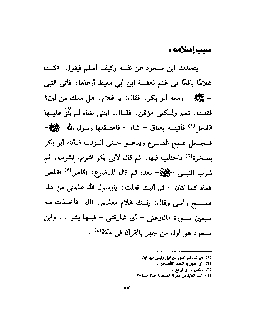 سبب إسلامه :
يتحدث ابن مسعود عن نفسه وكيف أسلم فيقول : «كنت
غلامًا يافعًا في غنم لعقبة ابن أبي معيط أرعاها، فأتى النبي
- ﷺ - ومعه أبو بكر، فقال: يا غلام، هل معك من لبن؟
فقلت: نعم ولكني مؤتمن، فقال: ائتني بشاة لم يَنْزُ عليها
الفحل فأتيته بعناق - شاة - فاعتقلها رسول الله - ﷺ -
فجعل يمسح الضرع ويدعو حتى أنزلت فأتاه أبو بكر
بصخرة فاحتلب فيها، ثم قال لأبي بكر اشرب، فشرب، ثم
شرب النبي - ﷺ - بعده، ثم قال للضرع: اقلص فقلص
فعاد كما كان، ثم أتيت فقلت: يا رسول الله علمني من هذا
فمسح رأسي وقال: إنك غلام معلم، قال: فأخذت منه
سبعين سورة ما نازعني - أي شاركني - فيها بشر ... وابن
مسعود هو أول من جهر بالقرآن في مكة